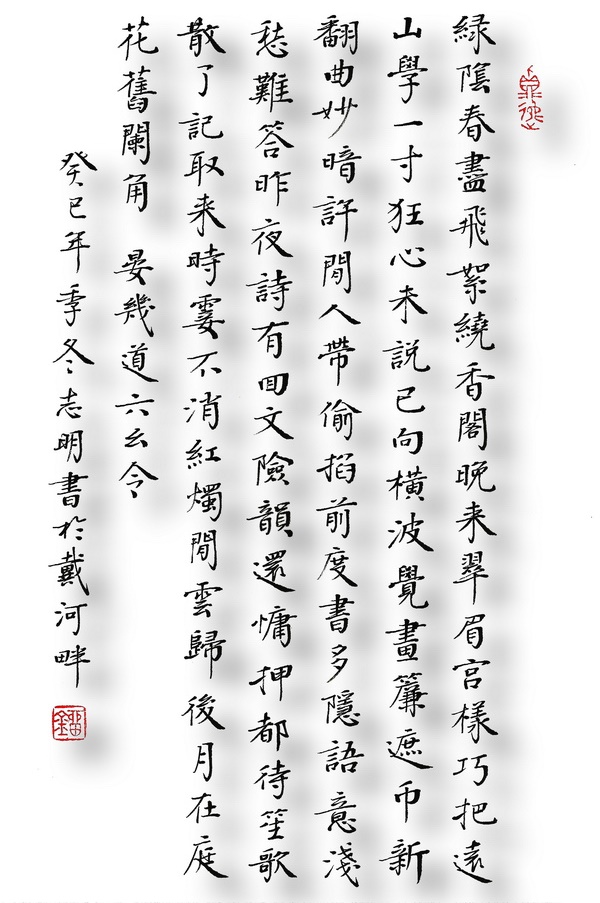 綠隂春盡飛絮繞香閣晚来翠眉宮樣巧把遠
山學一寸狂心未説已向橫波覺畫簾遮帀新
翻曲妙暗許閒人帶偷掐前度書多隱語意淺
愁難答昨夜詩有回文險韻還慵押都待笙歌
散了記取来時霎不消紅燭閒雲歸後月在庭
花舊闌角 晏幾道六幺令
癸巳年季冬志明書於戴河畔